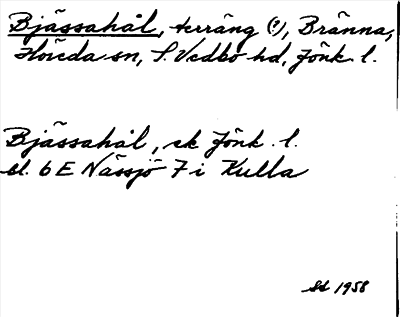 Bjässahål, terräng (?), Bränna,
Fliseda sn, S. Vedbo hd, Jönk. l.
Bjässahål, ek Jönk. l.
bl. 6 E Nässjö 7 i Kulla
1958